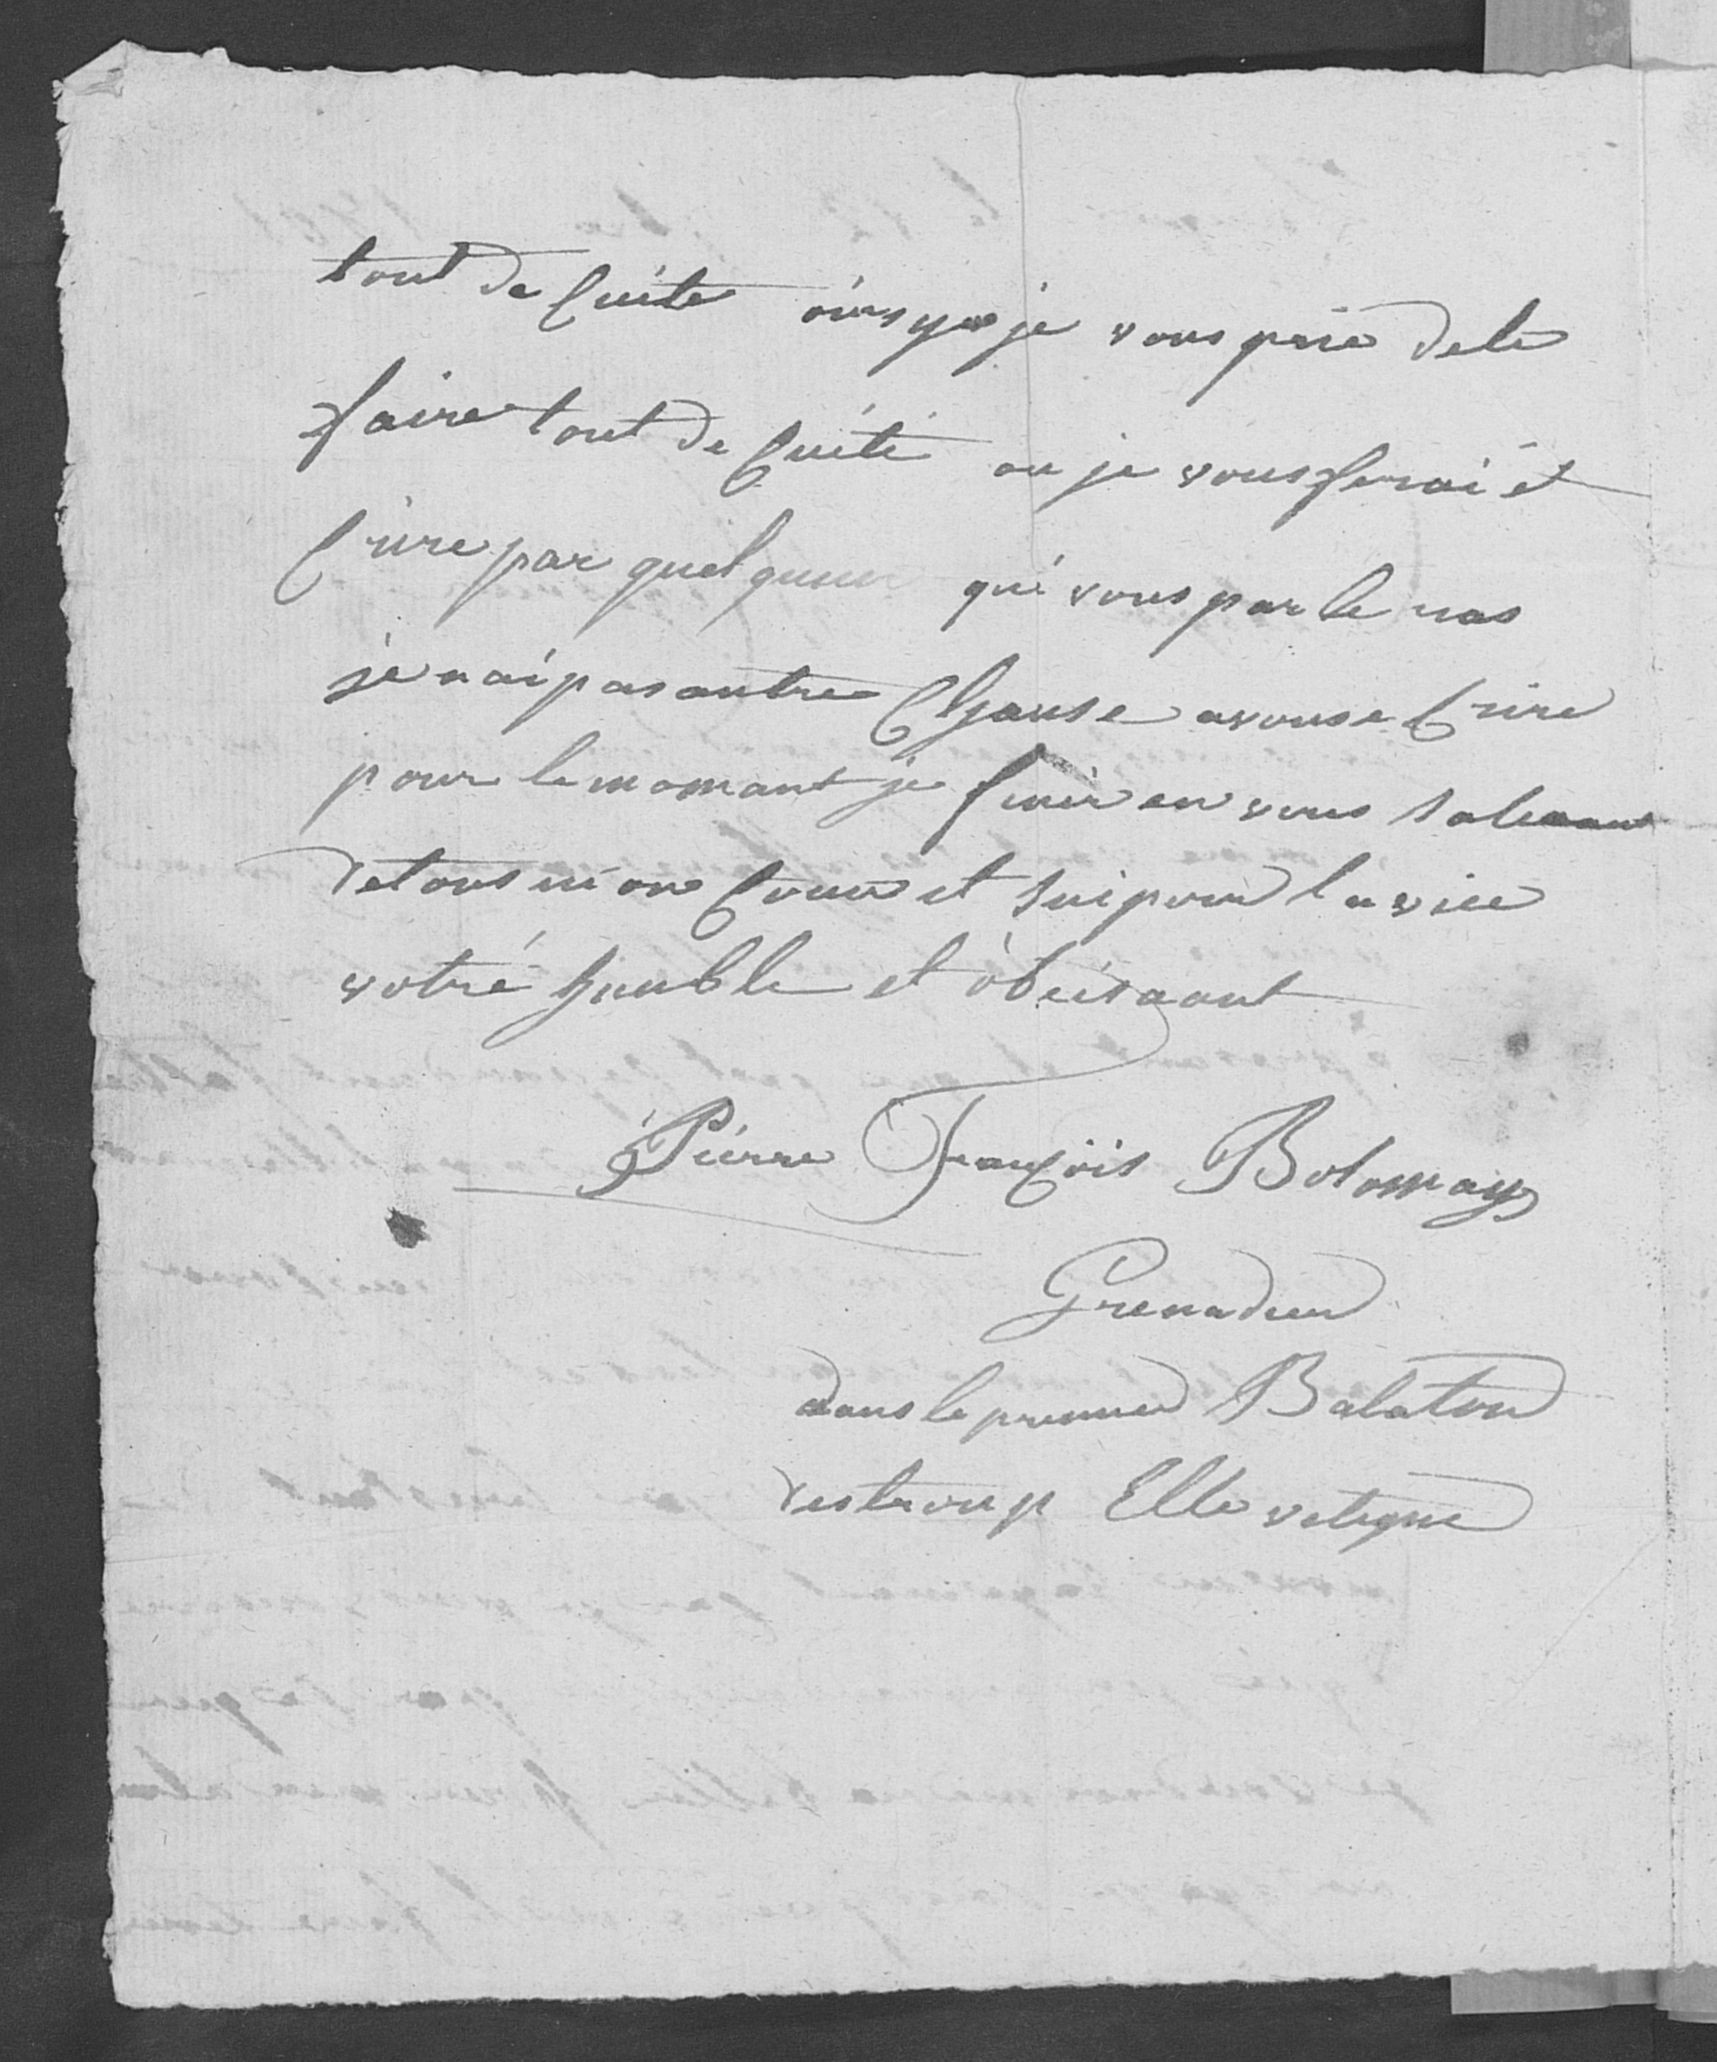 tout de Cuite ains y je vous prie dele
faire tout de Cuité ou je vous ferai ét
Crire par quel quun qui vous par le ras
je nai pas autre Chause avouse Crire
pour le momant je finir en vous saluant
de tous mon Cour et sui pour la vice
votré humble et òbéisaant
Pierre François Bolomay
Grenadier
dans le premier Balaton
destroup Elle vetique